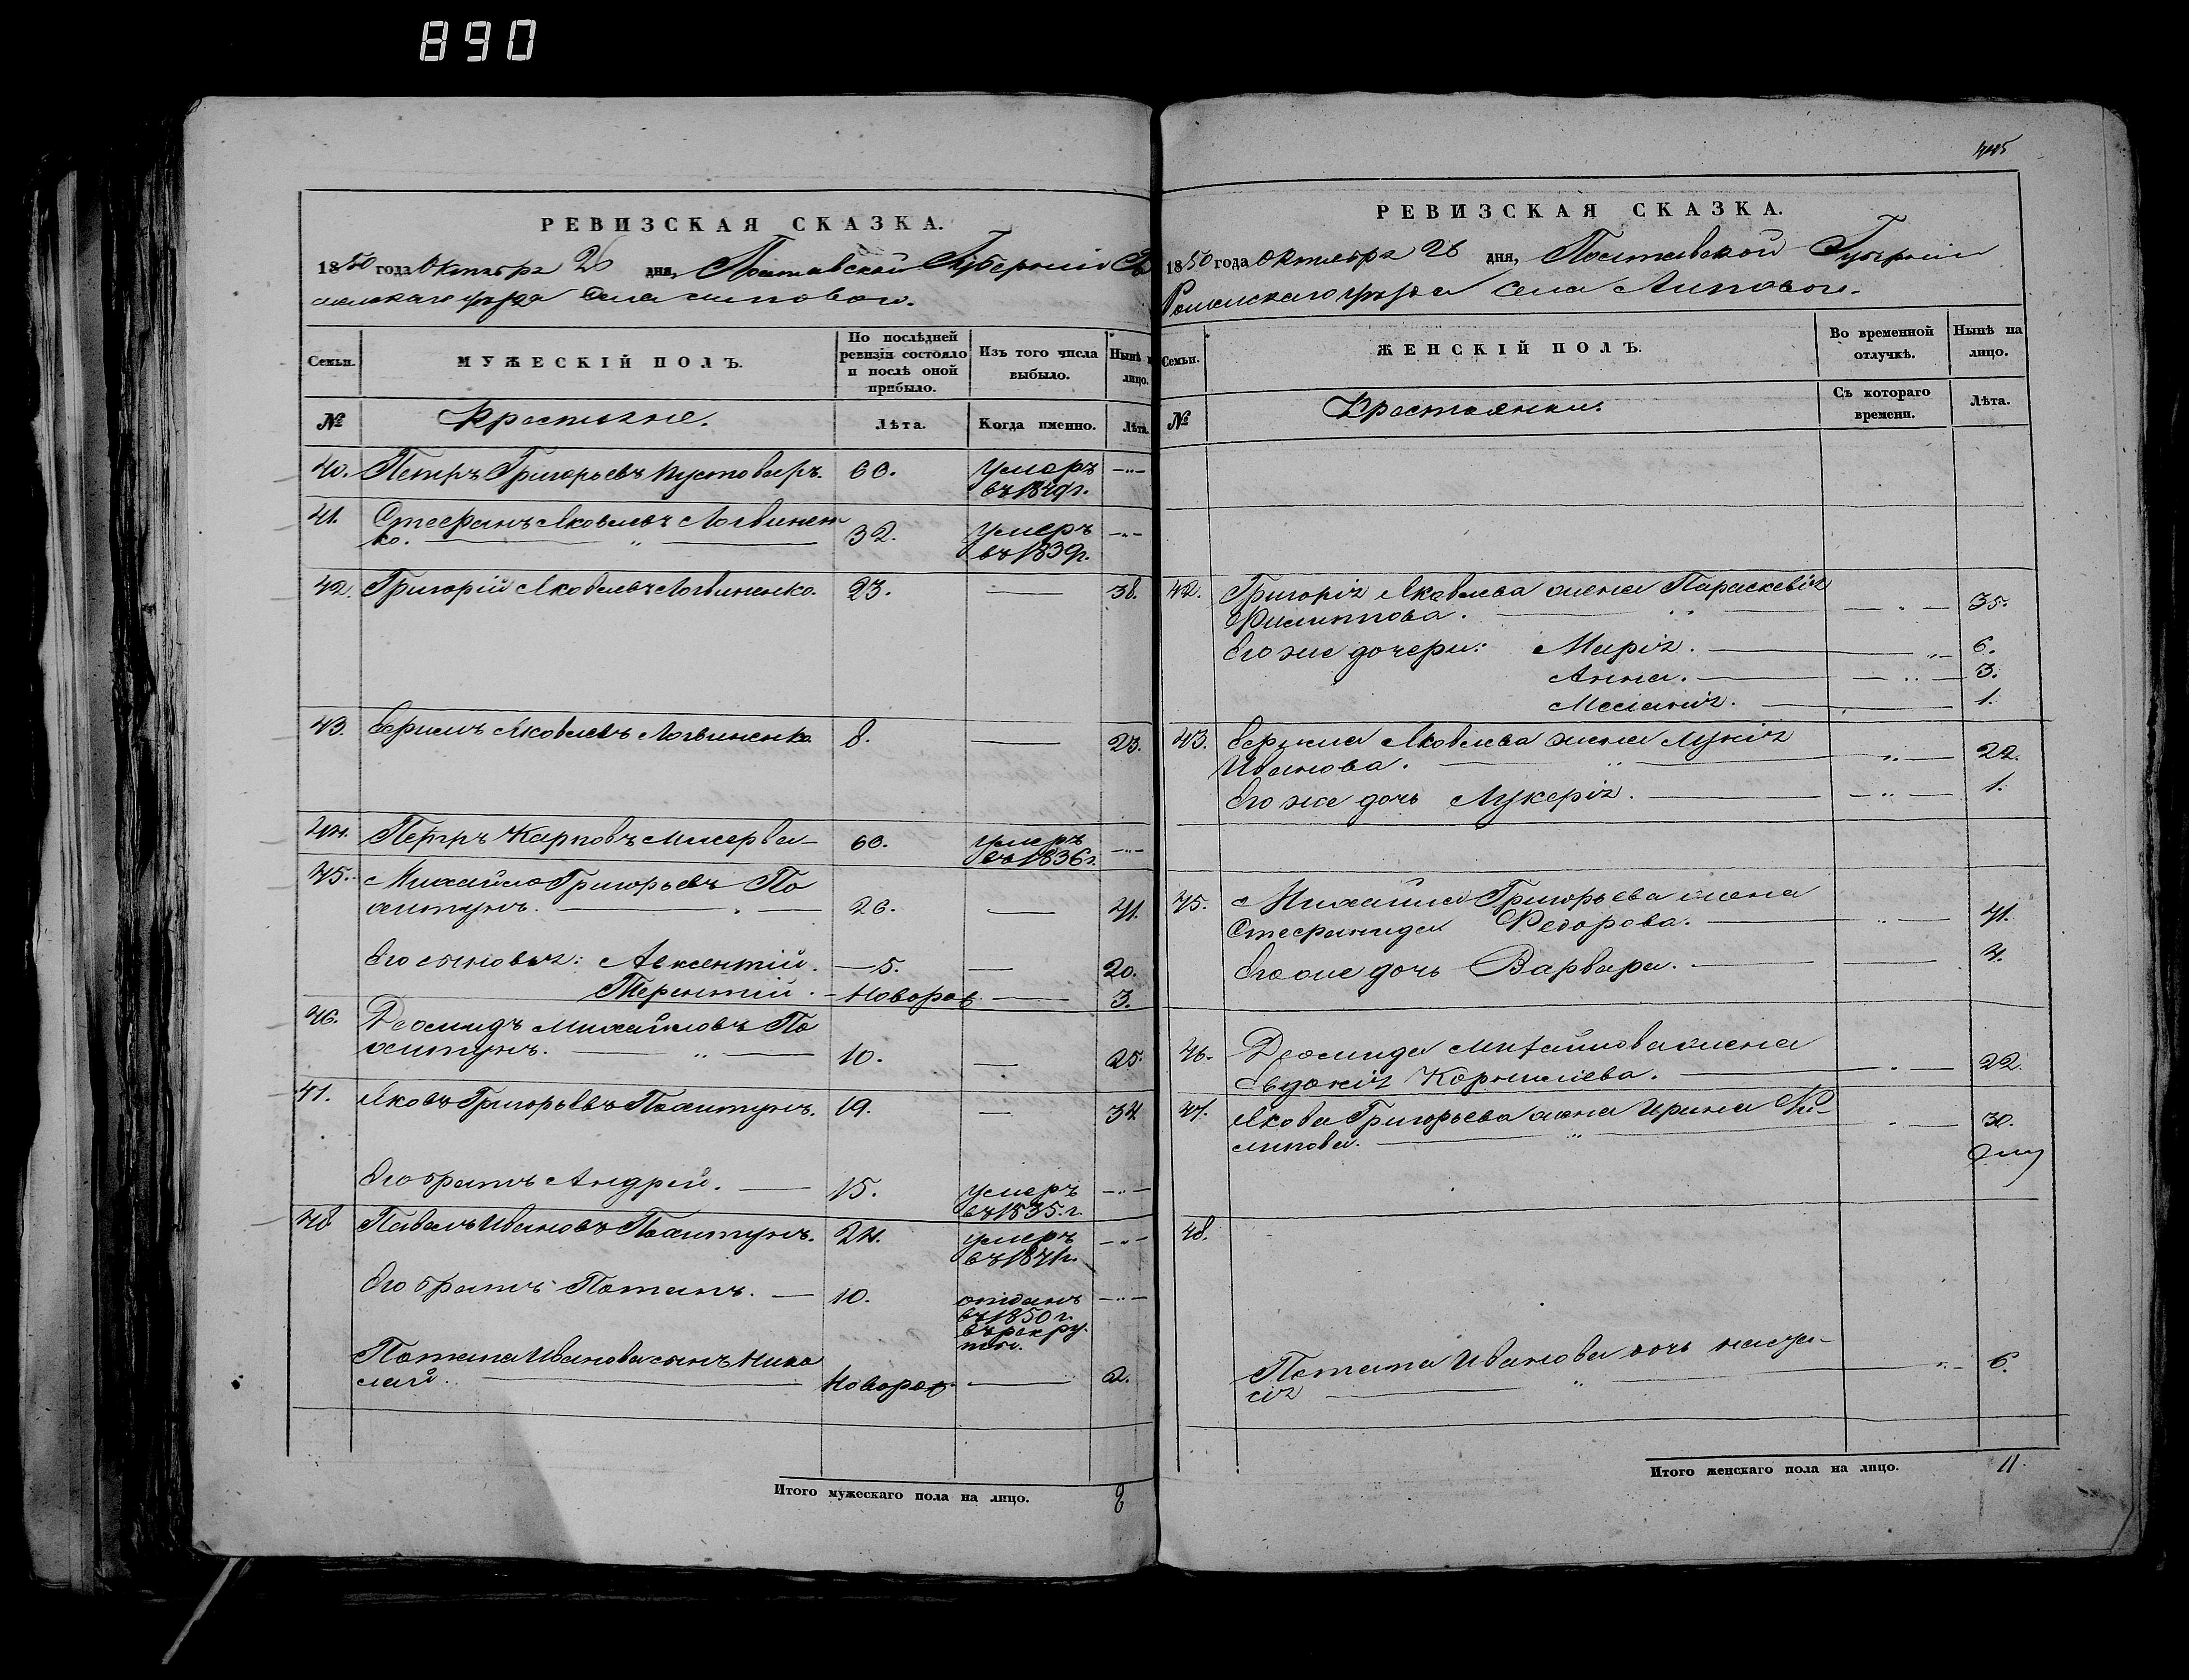 890
РЕВИЗСКАЯ СКАЗКА.
1850 года Октября 26 дня, Полтавской Губерніи Ро
менскаго уезда Села Липовой.
Семьи. МУЖЕСКІЙ ПОЛЪ. По послѣдней ревизіи состояло и послѣ оной прибыло. Изъ того числа выбыло. Нынѣ лицо.
№ Крестьяне. Лѣта. Когда именно. Лѣта.
40. Петръ Григорьевъ Пустоваръ. 60. умеръ
въ 1849 г.
41. Стефанъ Яковлевъ Логвинен
ко. 32. умеръ
въ 1839 г.
42. Григорій Яковлевъ Логвиненко. 23. 38.
43. Ефимъ Яковлевъ Логвиненко 8. 23.
44. Петръ Карповъ 60. умеръ
въ 1836 г.
45. Михайло Григорьевъ По
хитунъ. 26. 41.
Его сыновья: Авксентій. 5. 20.
Терентій. Новорож 3.
46. Деомидъ Михайловъ По
хитунъ. 10. 25.
47. Яковъ Григорьевъ Похитунъ. 19. 34.
Его братъ Андрей. 15. умеръ
въ 1835 г.
48 Павелъ Ивановъ Похитунъ. 24. умеръ
въ 1841 г.
Его братъ Потапъ. 10. отданъ
въ 1850 г.
въ рекру
ты.
Потапа Иванова сынъ Нико
лай. Новорож. 2.
Итого мужескаго пола на лицо. 8
РЕВИЗСКАЯ СКАЗКА.
1850 года Октября 26 дня, Полтавской Губерніи
Роменскаго уезда Села Липовой.
Семьи. ЖЕНСКІЙ ПОЛЪ. Во временной отлучкѣ. Нынѣ на лицо.
№ Крестьянки. Съ котораго времени. Лѣта.
42. Григорія Яковлева жена Параскевія
Филиппова. 35.
Его же дочери: Марія. 6.
Анна. 3.
Меланія. 1.
43. Ефима Яковлева жена Лукія
Иванова. 22.
Его же дочь Лукерія. 1.
45. Михайла Григорьева жена
Стефанида Федорова. 41.
Его же дочь Варвара. 4.
46. Деомида Михайлова жена
Евдокія Корнилиева. 22.
47. Якова Григорьева жена Ирина Фи
липова. 30.
48.
Потапа Иванова дочь Наста
сія 6.
Итого женскаго пола на лицо. 11